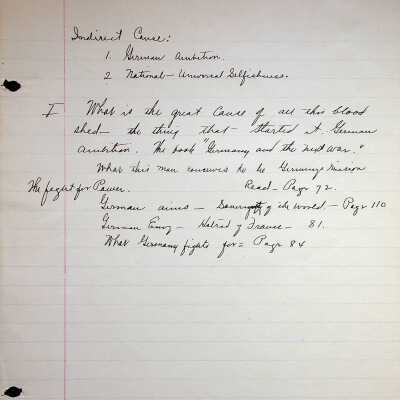 Indirect Cause:
1. German Ambition.
2. National - Universal Selfishness.
I What is the great Cause of all this blood
shed - the thing that started it. German
Ambition. The book "Germany and the next war."
What this man conceives to be Germany's mission
The fight for Power. Read - Page 72.
German aims - of the World. - Page 110
German Envy - Hatred of France - 81.
What Germany fights for = Page 84